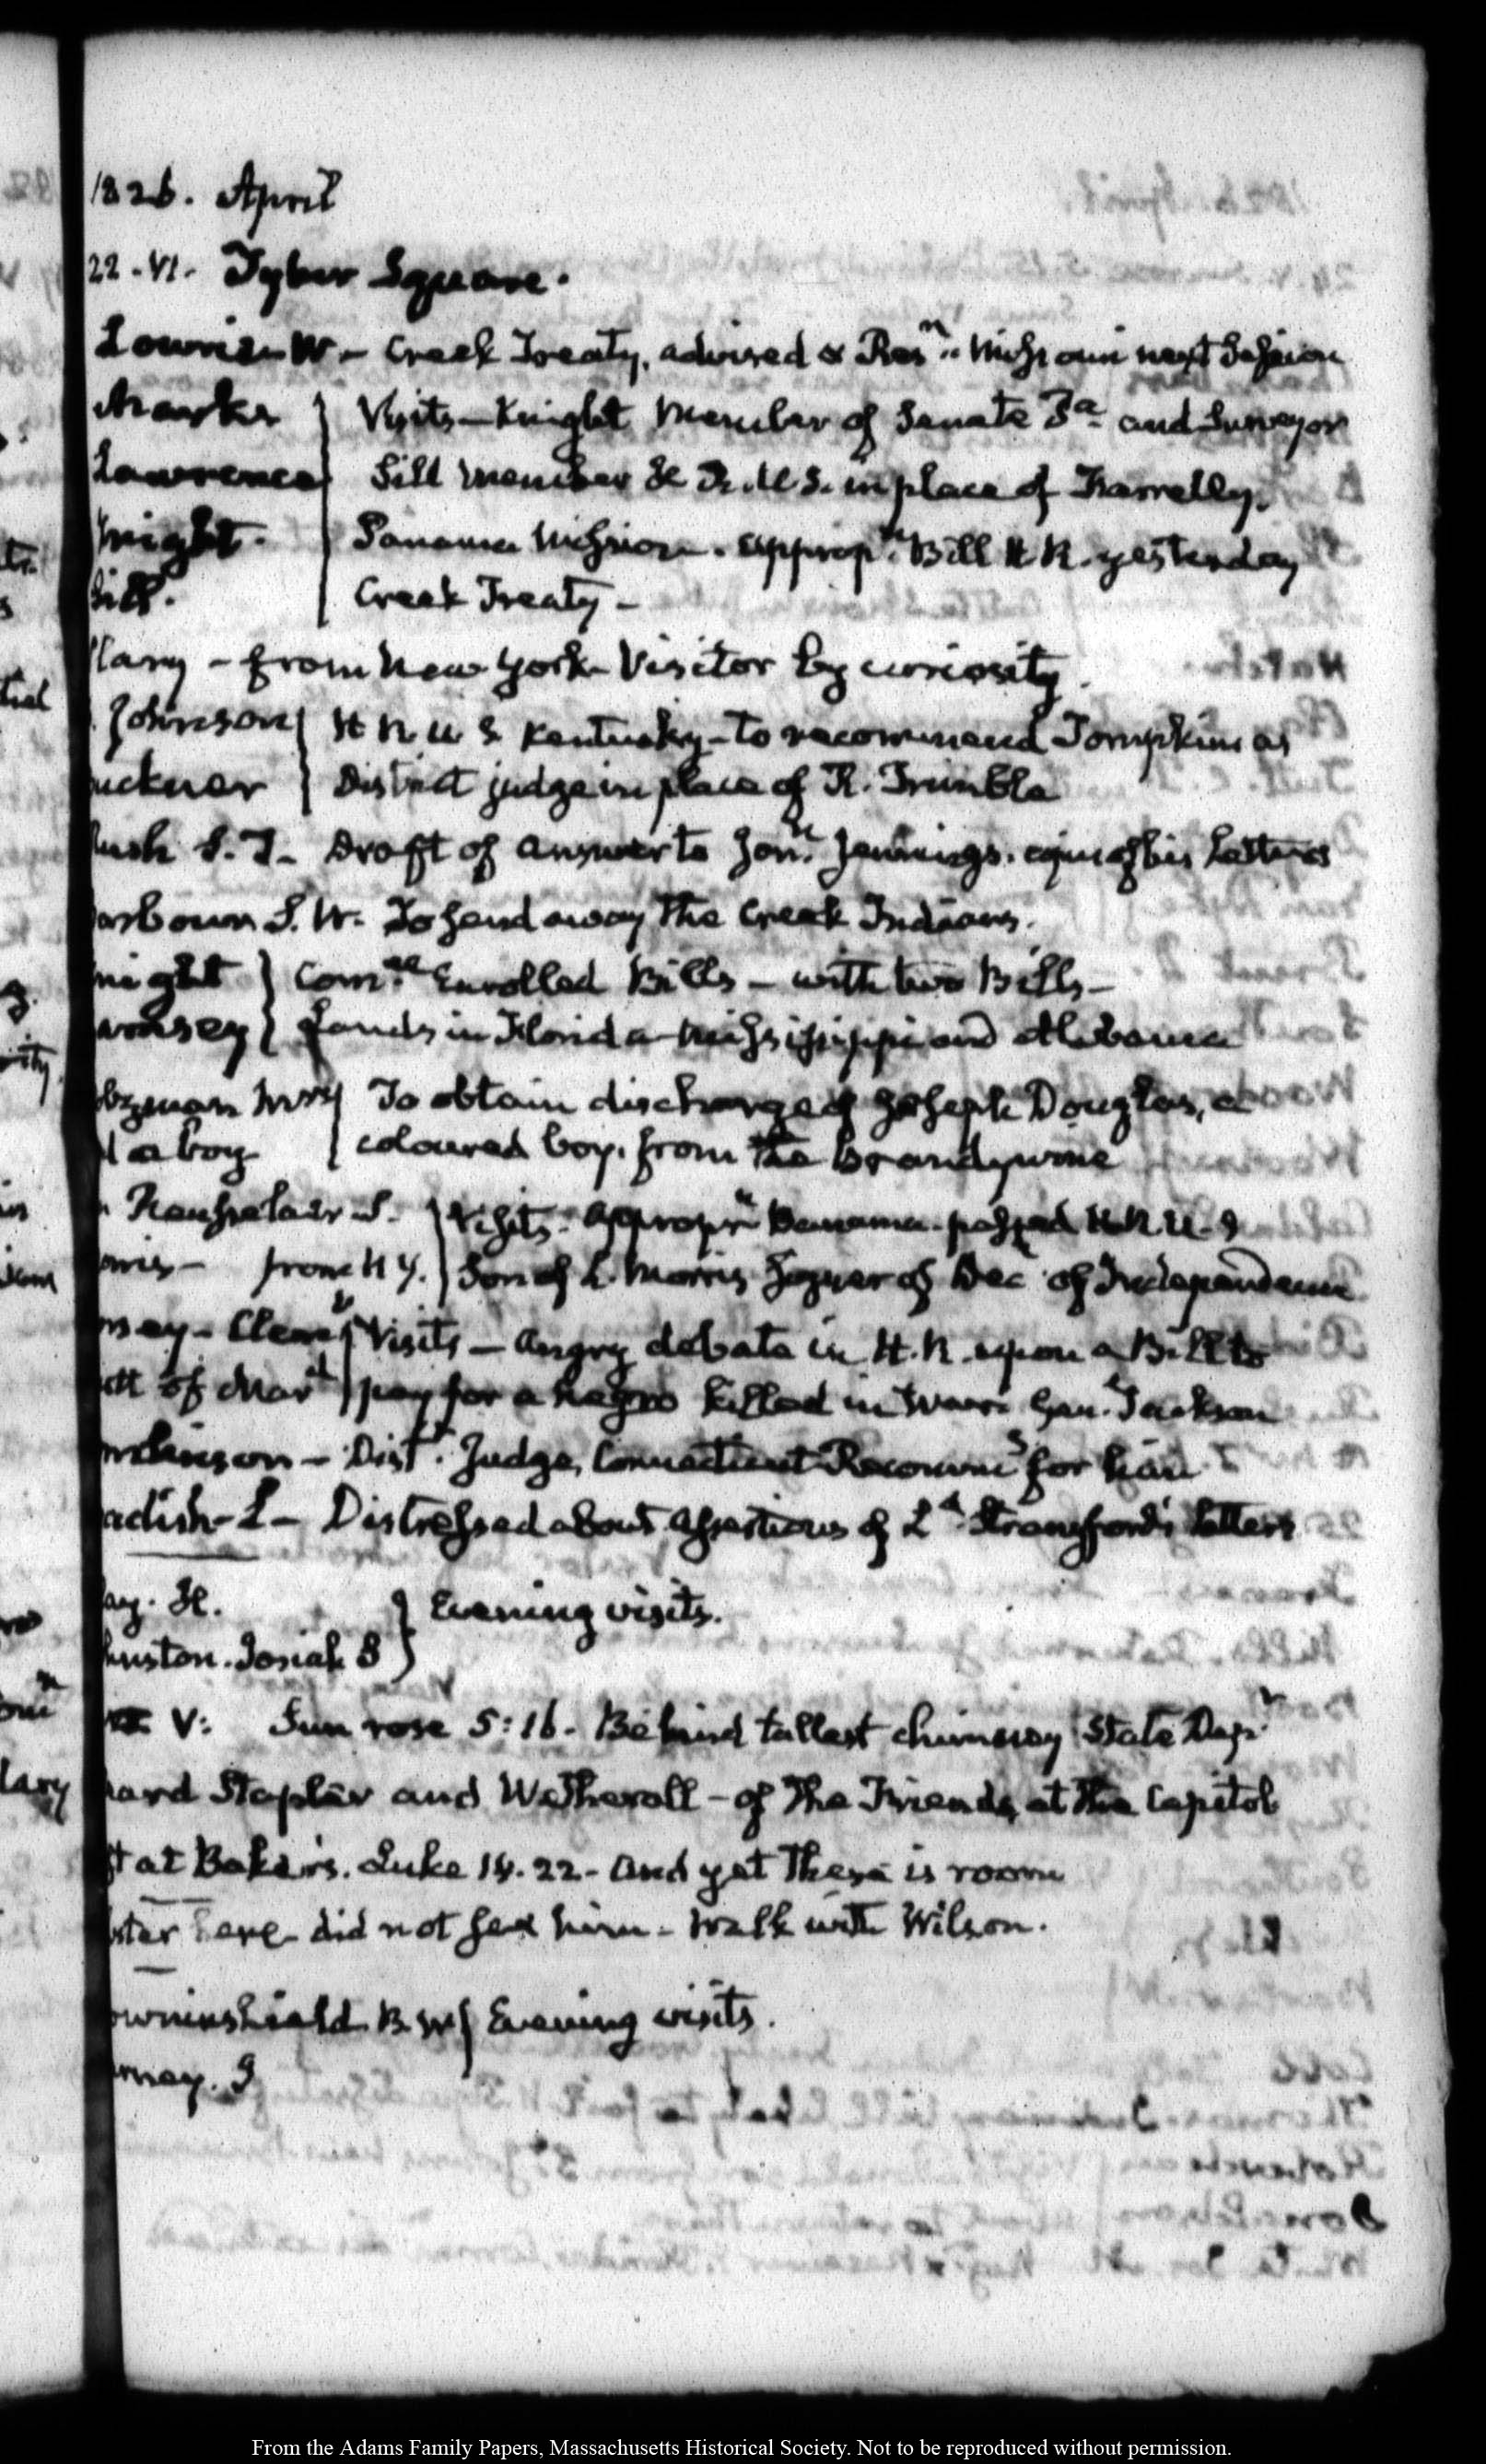 1826. April
22. VI. Tyber Square.
Lowrie W. - Creek Treaty, advised & Resn. Missouri next Session
Marks
Lawrence
Knight.
Sill.
Visits - Knight Member of Senate Pa and Surveyor
Sill Member H. R. U.S. in place of Farrelly.
Panama Mission. appropn Bill H. R. yesterday
Creek Treaty -
Clary - from New York Visitor by curiosity.
Johnson
uckner
H R U S Kentucky - to recommend Tompkins as
District judge in place of R. Trimble
ush S. T. - Draft of answer to Jonn. Jennings. of his Letters
arbour S. W. To send away the Creek Indians.
night
amsey
Comee Enrolled Bills - with two Bills -
Lands in Florida Mississippi and Alabama
ozman Mrs
d a boy
To obtain discharge of Joseph Douglas, a
coloured boy, from the Brandywine
n Rensselaer S.
orris - from N Y.
Visits. Appropn Panama passed H. R. U. S
Son of L. Morris Signer of Dec of Independence
rsey - Clemt
ell of Mard
Visits - Angry debate in H. R. upon a Bill to
pay for a negro killed in War. Genl. Jackson
mlinson - Dist. Judge, Connecticut Recomms for him
adish - L - Distressed about assertions of Ld. Strangford's Letters
lay. H.
hnston. Josiah S
Evening visits.
V: Sun rose 5:16. Behind tallest chimney State Dept
eard Stapler and Wetherall - of the Friends, at the Capitol
at Baker's. Luke 14. 22 - And yet there is room
ster here did not see him - Walk with Wilson.
owninshield B W
Evening visits.
rney. J
From the Adams Family Papers, Massachusetts Historical Society. Not to be reproduced without permission.